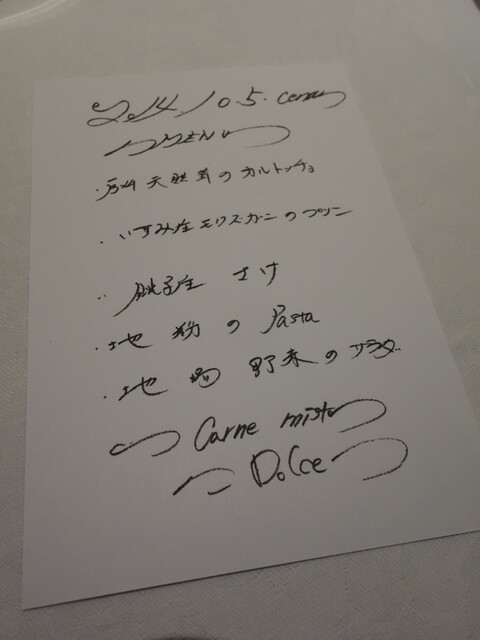 2014.10.5. cena
MENU
天然茸のカルトッチョ
・いすみ産モクズガニのプリン
・銚子産 さけ
・地粉のPasta
・地場野菜のサラダ
Carne mista
Dolce